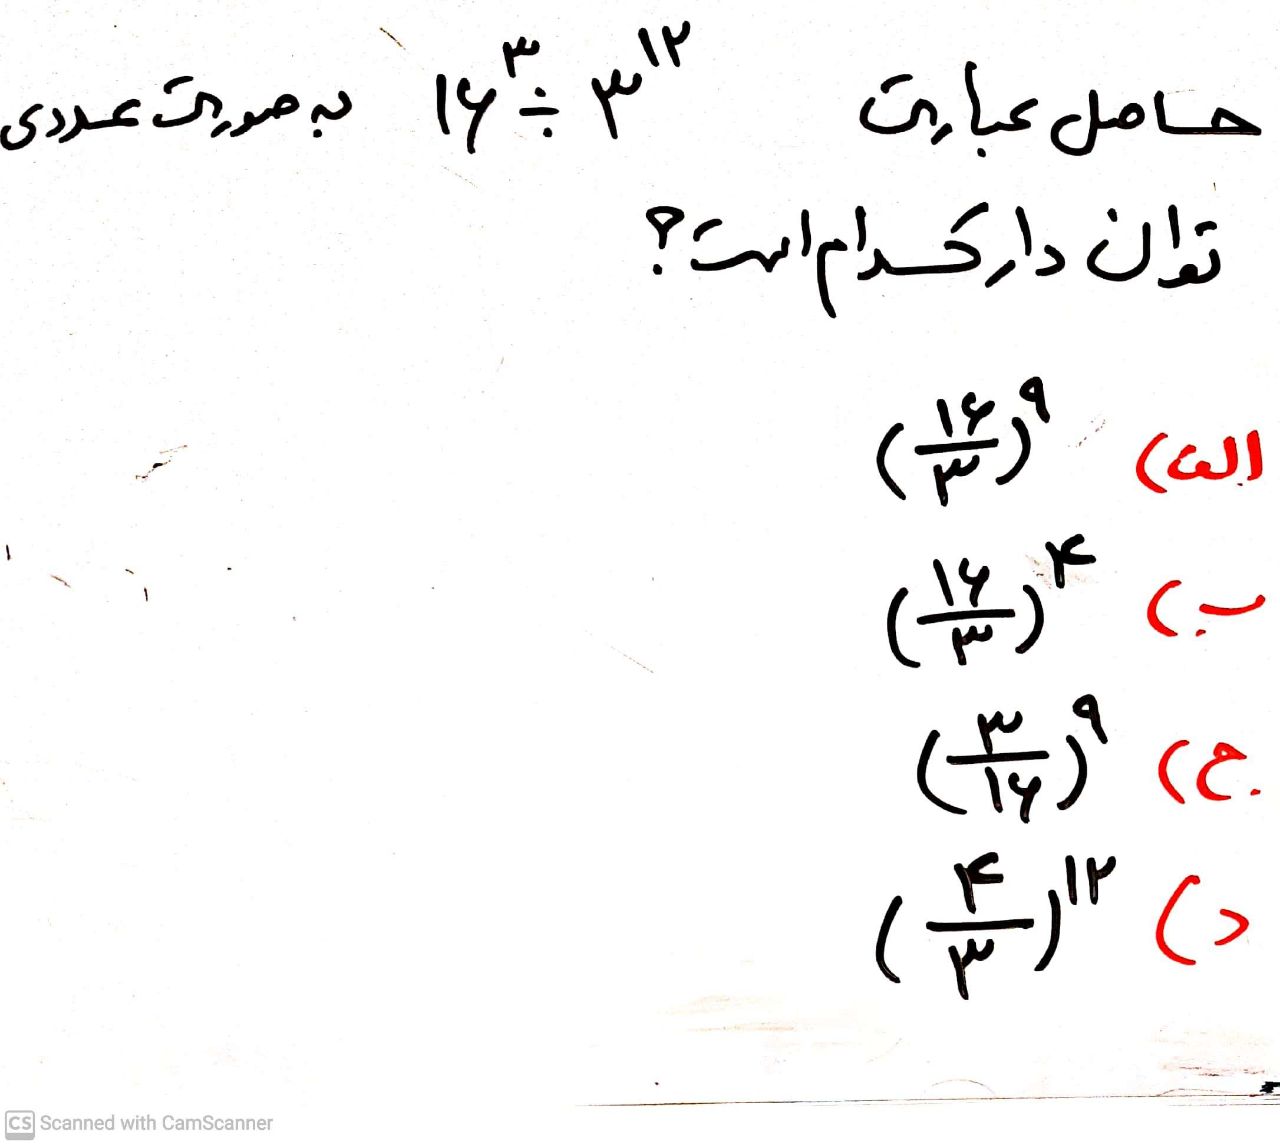 حاصل عبارت ۱۶^۳ ÷ ۳^۱۲ به صورت عددی
توان دار کدام است؟
الف) (۱۶/۳)^۹
ب) (۱۶/۳)^۴
ج) (۳/۱۶)^۹
د) (۴/۳)^۱۲
CS Scanned with CamScanner